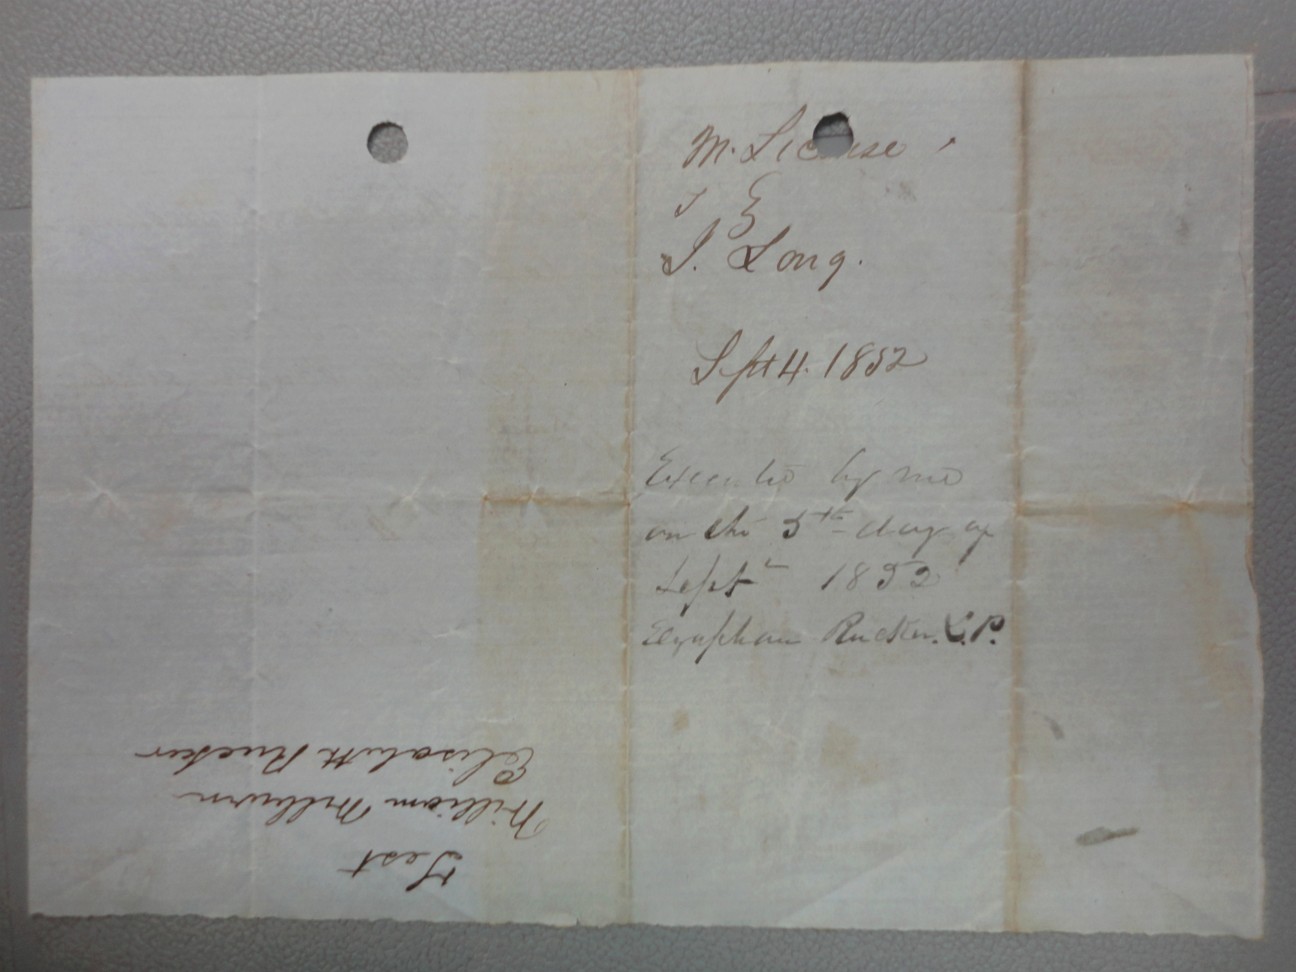 M. License
J. Long.
Sept 4. 1852
Executed by me
on the 5th day of
Sept 1852
Rucker.
Test
William Milburn
Elisabeth Rucker